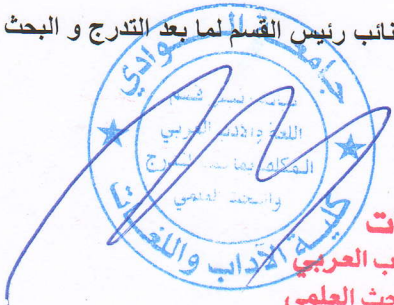 نائب رئيس القسم لما بعد التدرج و البحث
جامعة الوادي
نائب رئيس قسم
اللغة والأدب العربي
المكلف بما بعد التدرج
والبحث العلمي
كلية الآداب واللغات
ت
ب العربي
حث العلمي